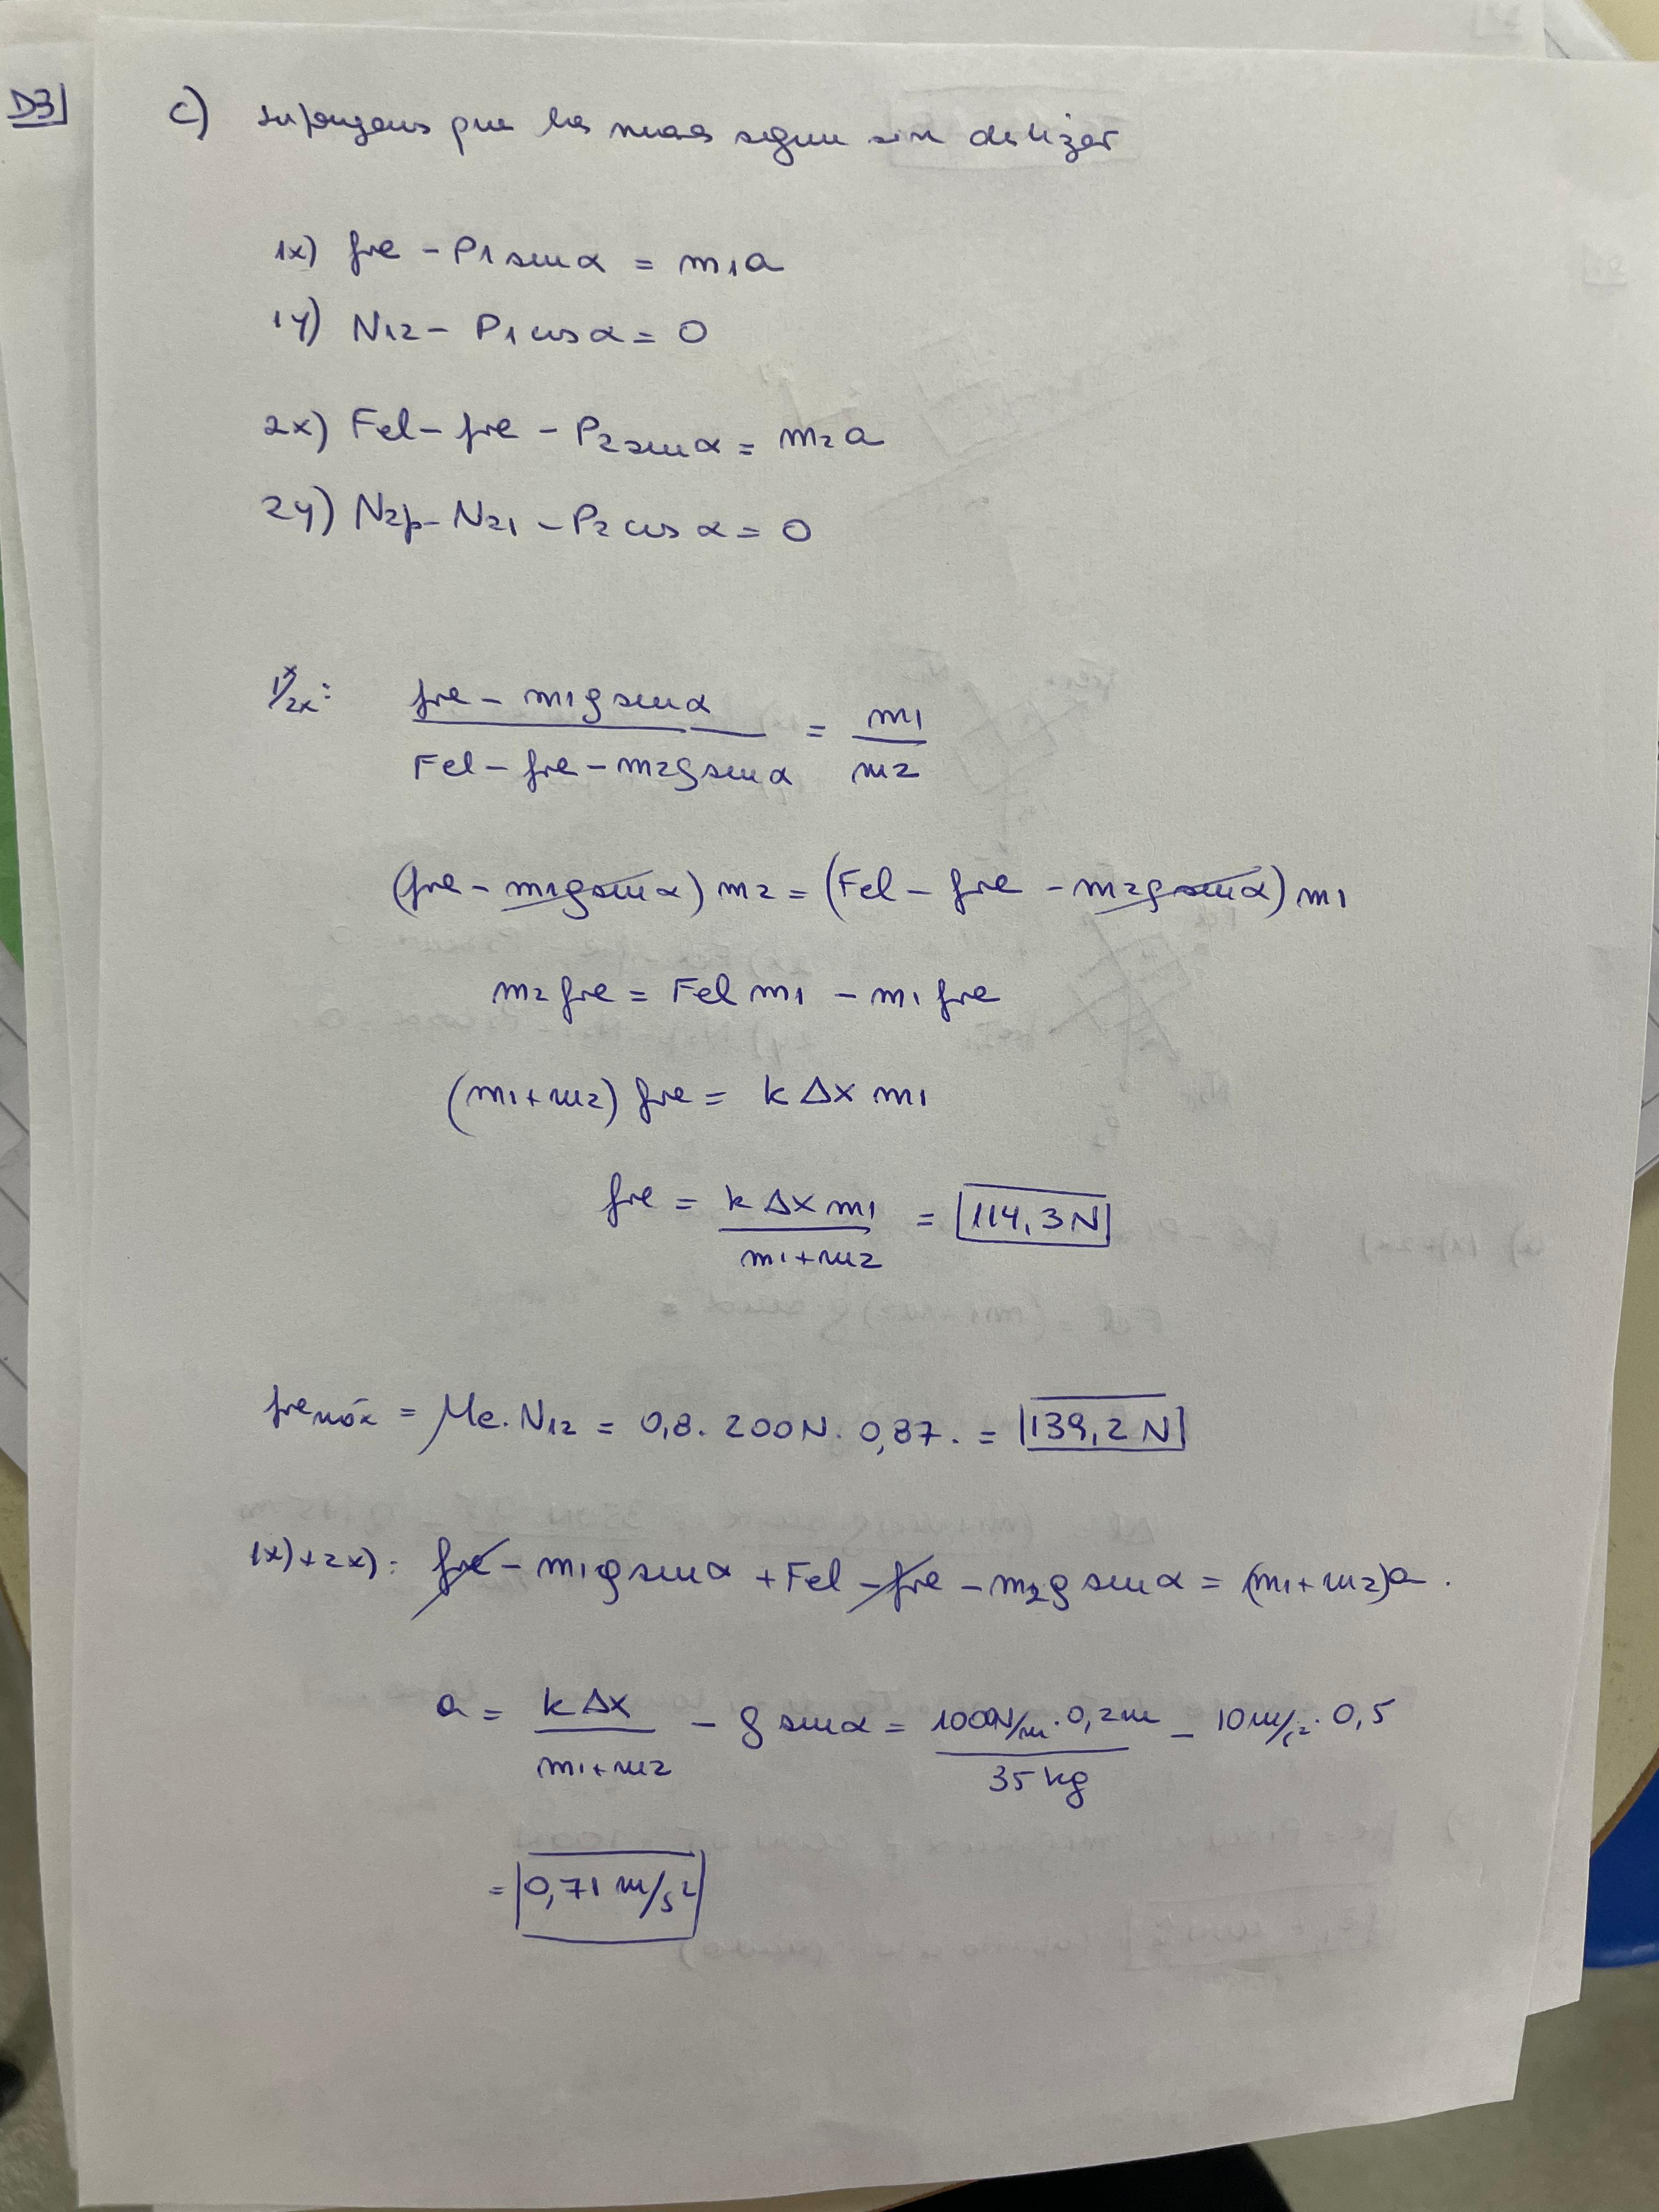 D3
c) supongamos que las masas siguen sin deslizar
1x) fre - P1 sen α = m1a
1y) N12 - P1 cos α = 0
2x) Fel - fre - P2 sen α = m2 a
2y) N2p - N21 - P2 cos α = 0
1x/2x: (fre - m1g sen α) / (Fel - fre - m2g sen α) = m1 / m2
(fre - m1g sen α) m2 = (Fel - fre - m2g sen α) m1
m2 fre = Fel m1 - m1 fre
(m1+m2) fre = k Δx m1
fre = k Δx m1 / (m1+m2) = 114,3 N
fre máx = μe. N12 = 0,8. 200N. 0,87. = 139,2 N
1x)+2x): fre - m1g sen α + Fel - fre - m2g sen α = (m1+m2)a.
a = k Δx / (m1+m2) - g sen α = 1000N/m. 0,2m / 35 kg - 10 m/s². 0,5
= 0,71 m/s²